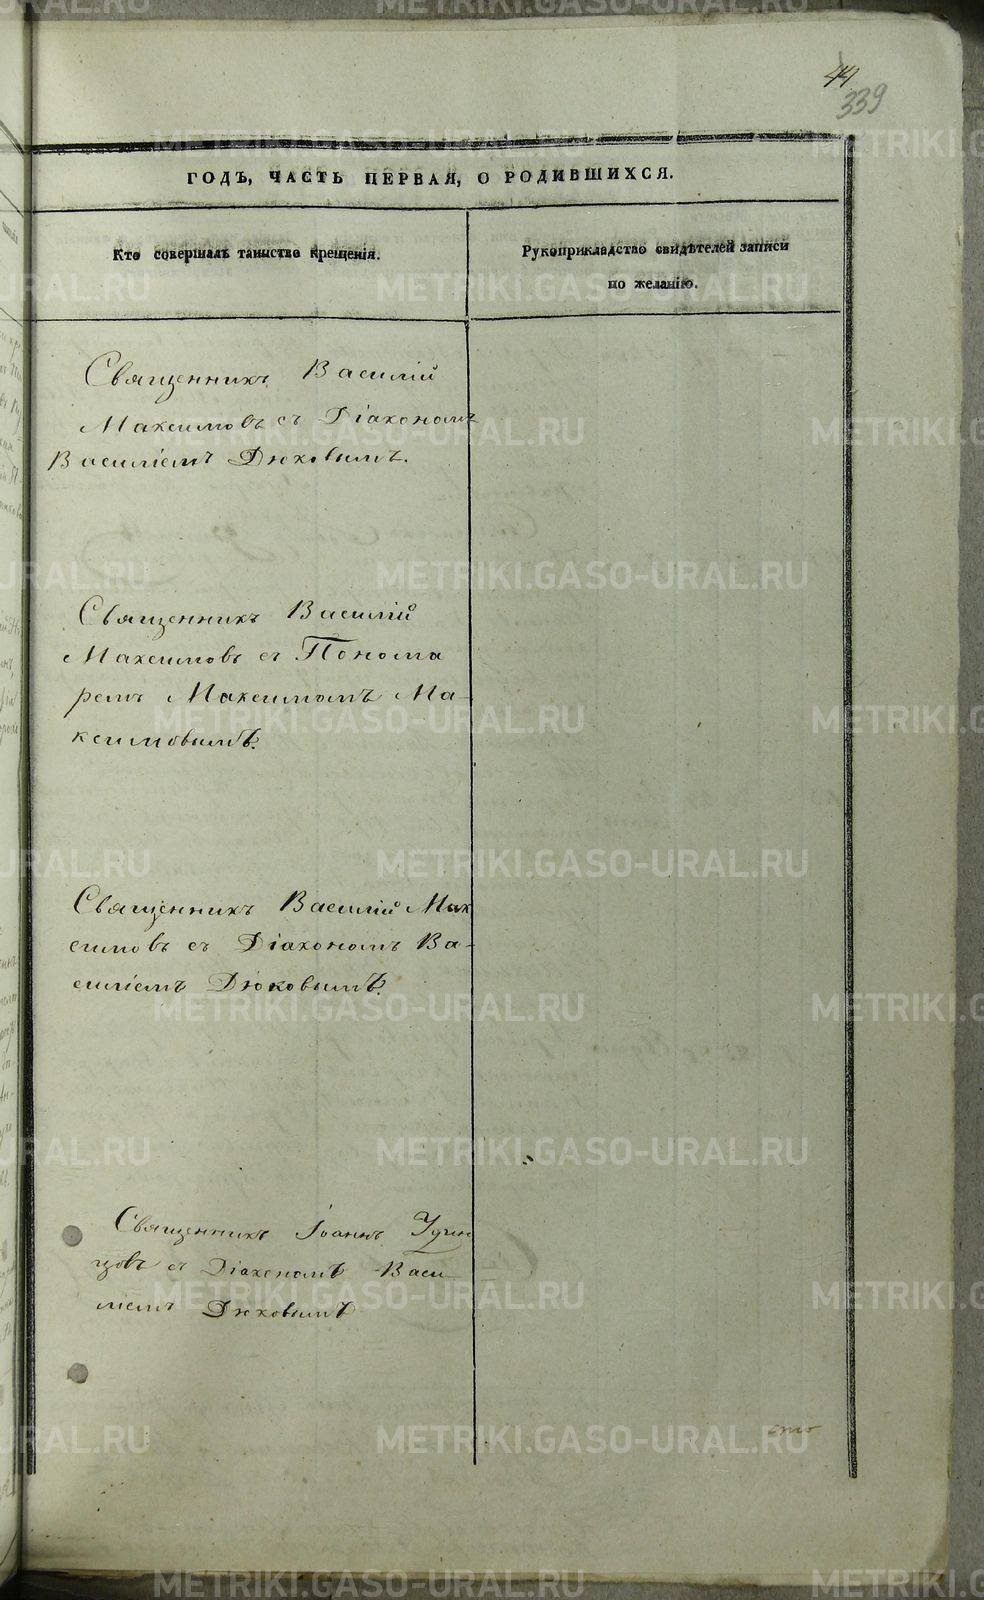 44
339
ГОДЪ, ЧАСТЬ ПЕРВАЯ, О РОДИВШИХСЯ.
Кто совершалъ таинство крещенія.
Рукоприкладство свидѣтелей записи
по желанію.
Священникъ Василій
Максимовъ съ Діакономъ
Василіемъ Дюковымъ.
Священникъ Василій
Максимовъ съ Понома
ремъ Максимомъ Ма-
ксимовымъ.
Священникъ Василій Мак
симовъ съ Діакономъ Ва-
силіемъ Дюковымъ.
Священникъ Іоаннъ
цовъ съ Діакономъ Васи-
ліемъ Дюковымъ
METRIKI.GASO-URAL.RU